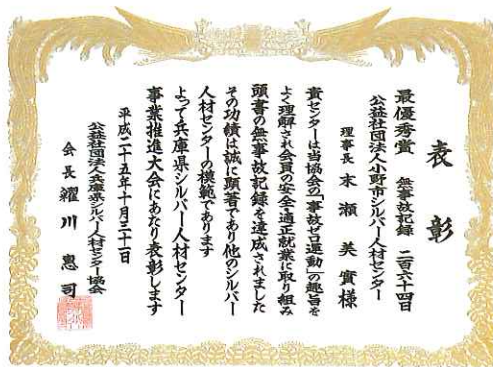 表彰
最優秀賞 無事故記録 二百六十四日
公益社団法人小野市シルバー人材センター
理事長 末瀬美實様
貴センターは当協会の「事故ゼロ運動」の趣旨を
よく理解され会員の安全適正就業に取り組み
頭書の無事故記録を達成されました
その功績は誠に顕著であり他のシルバー
人材センターの模範であります
よって兵庫県シルバー人材センター
事業推進大会にあたり表彰します
平成二十五年十月三十一日
公益社団法人兵庫県シルバー人材センター協会
会長 耀川惠司